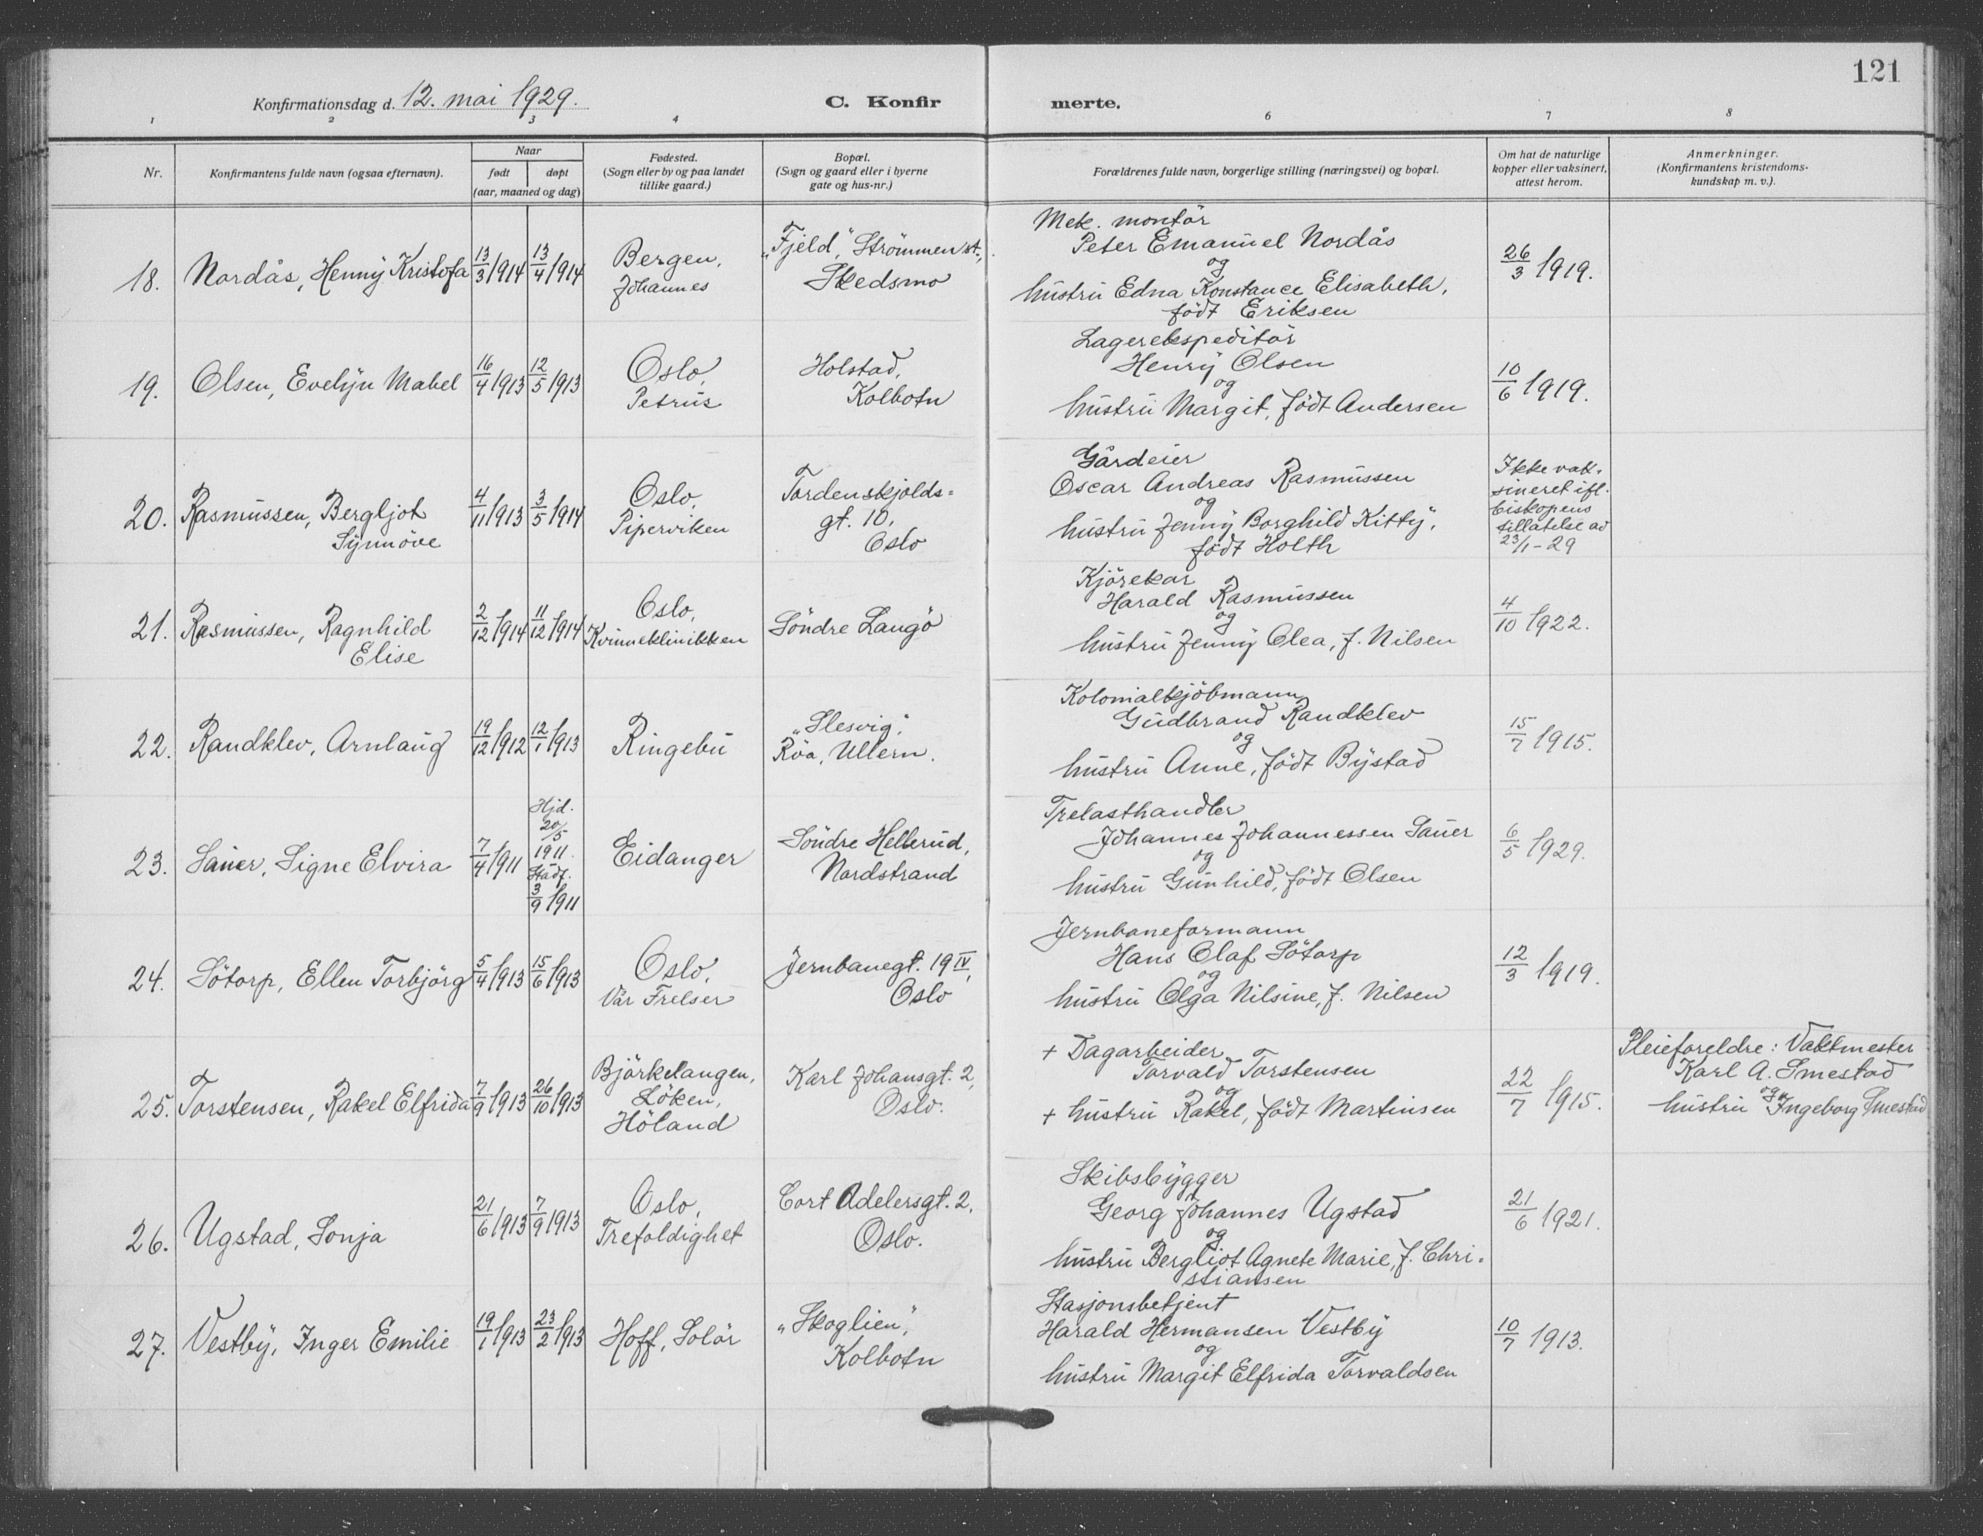 121
Konfirmationsdag d. 12. mai 1929.
C. Konfir merte.
1 2 3 4 6 7 8
Nr.
Konfirmantens fulde navn (ogsaa efternavn).
Naar
født døpt
(aar, maaned og dag)
Fødested.
(Sogn eller by og paa landet
tillike gaard.)
Bopæl.
(Sogn og gaard eller i byerne
gate og hus-nr.)
Forældrenes fulde navn, borgerlige stilling (næringsvei) og bopæl.
Om hat de naturlige
kopper eller vaksinert,
attest herom.
Anmerkninger.
(Konfirmantens kristendoms-
kundskap m. v.).
18. Nordås, Henny Kristofa
13/3 1914
13/4 1914
Bergen,
Johannes
"Fjeld", Strømmen st.,
Skedsmo
Mek. montör
Peter Emanuel Nordås
og
hustru Edna Konstance Elisabeth,
födt Eriksen
26/3 1919.
19. Olsen, Evelyn Mabel
16/4 1913
12/5 1913
Oslo,
Petrus
Holstad,
Kolbotn
Lagerekspeditör
Henry Olsen
og
hustru Margit, födt Andersen
10/6 1919.
20. Rasmussen, Bergljot
Synnöve
4/11 1913
3/5 1914
Oslo,
Piperviken
Tordenskjolds=
gt. 10,
Oslo
Gårdeier
Oscar Andreas Rasmussen
og
hustru Jenny Borghild Kitty,
födt Holth
Ikke vak-
sineret ifl.
biskopens
tillatelse av
23/1-29
21. Rasmussen, Ragnhild
Elise
2/12 1914
11/12 1914
Oslo,
Kvinneklinikken
Söndre Langö
Kjörekar
Harald Rasmussen
og
hustru Jenny Olea, f. Nilsen
4/10 1922.
22. Randklev, Arnlaug
19/12 1912
12/1 1913
Ringebu
"Slesvig",
Röa, Ullern.
Kolonialkjöbmann
Gudbrand Randklev
og
hustru Anne, födt Bystad
15/7 1915.
23. Sauer, Signe Elvira
7/4 1911
Hjd.
20/5
1911
Stadf.
3/9 1911
Eidanger
Söndre Hellerud,
Nordstrand
Trelasthandler
Johannes Johannessen Sauer
og
hustru Gunhild, födt Olsen
6/5 1929.
24. Sötorp, Ellen Torbjörg
5/4 1913
15/6 1913
Oslo,
Vår Frelser
Jernbanegt. 19 IV,
Oslo
Jernbaneformann
Hans Olaf Sötorp
og
hustru Olga Nilsine, f. Nilsen
12/3 1919.
25. Torstensen, Rakel Elfrida
7/9 1913
26/10 1913
Björkelangen,
Löken,
Höland
Karl Johansgt. 2,
Oslo.
+ Dagarbeider
Torvald Torstensen
og
+ hustru Rakel, födt Martinsen
22/7 1915.
Pleieforeldre: Vaktmester
Karl A. Smestad
og
hustru Ingeborg Smestad
26. Ugstad, Sonja
21/6 1913
7/9 1913
Oslo,
Trefoldighet
Cort Adelersgt. 2,
Oslo.
Skibsbygger
Georg Johannes Ugstad
og
hustru Bergliot Agnete Marie, f. Chri-
stiansen
21/6 1921.
27. Vestby, Inger Emilie
19/1 1913
23/2 1913
Hoff, Solör
"Skoglien",
Kolbotn
Stasjonsbetjent
Harald Hermansen Vestby
og
hustru Margit Elfrida Torvaldsen
10/7 1913.